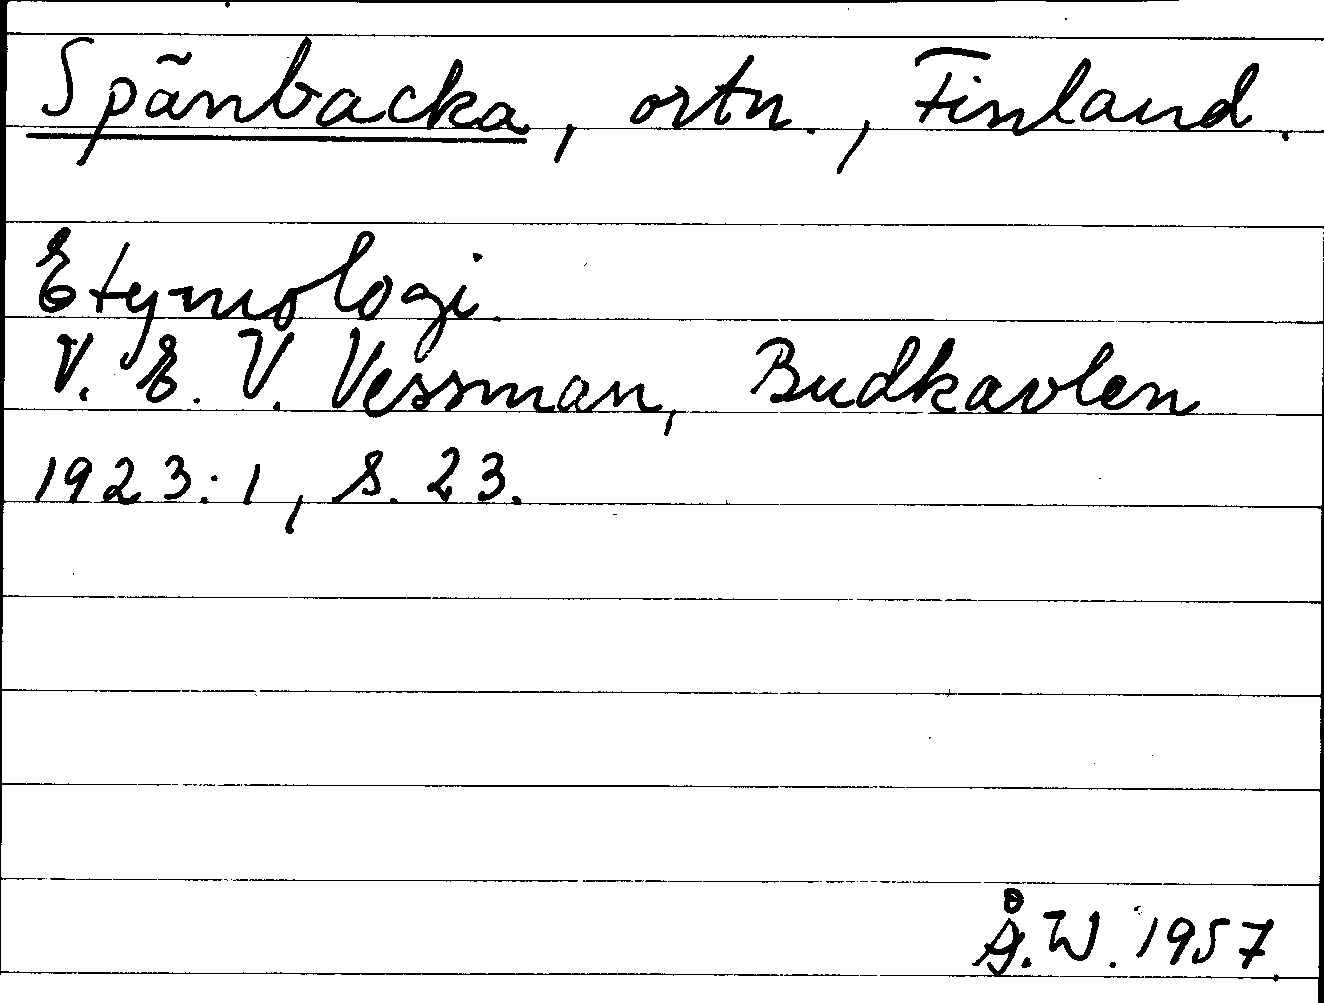 Spånbacka, ortn., Finland.
Etymologi.
V. E. V. Vessman, Budkavlen
1923:1, s. 23.
Å.W. 1957.